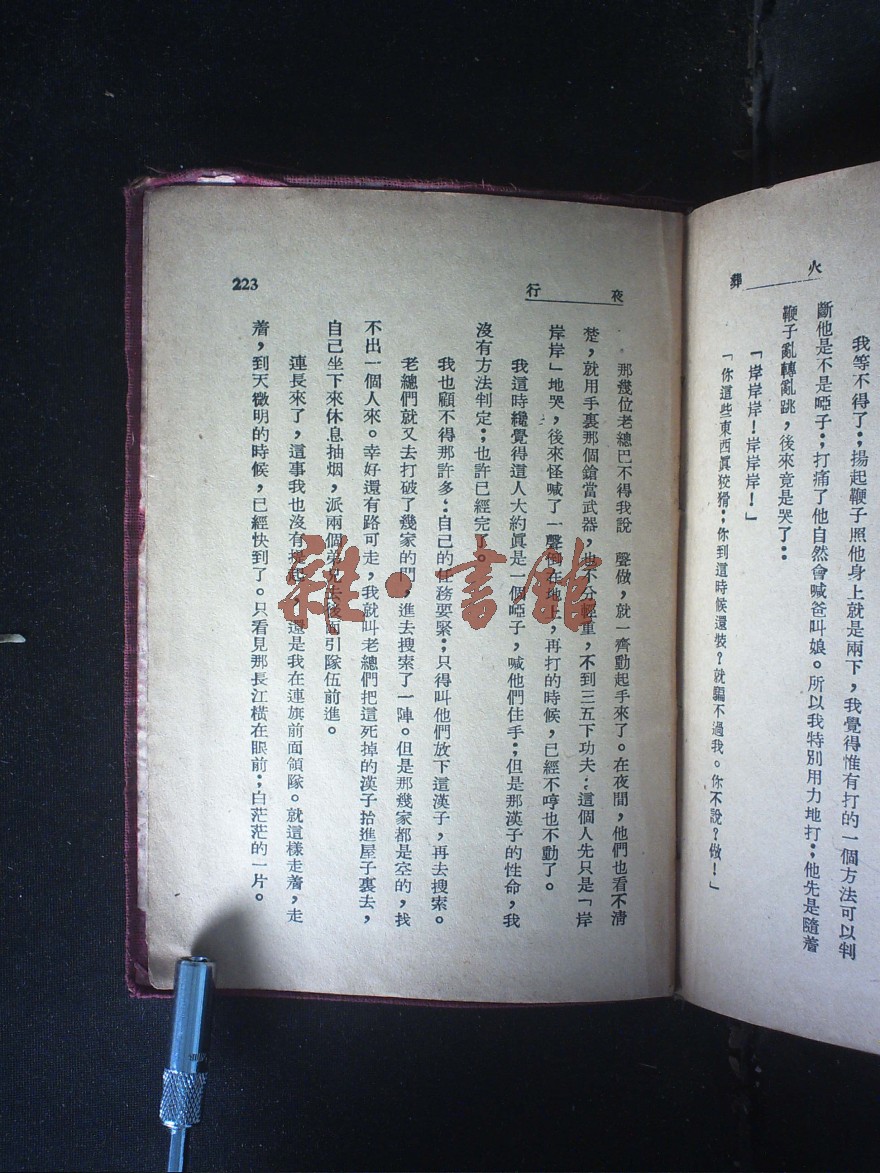 火葬
我等不得了；揚起鞭子照他身上就是兩下，我覺得惟有打的一個方法可以判
斷他是不是啞子；打痛了他自然會喊爸叫娘。所以我特別用力地打；他先是隨着
鞭子亂轉亂跳，後來竟是哭了：
「岸岸岸！岸岸岸！」
「你這些東西眞狡猾；你到這時候還裝？就騙不過我。你不說？做！」
夜行
那幾位老總巴不得我說 聲做，就一齊動起手來了。在夜間，他們也看不清
楚，就用手裏那個鎗當武器，也不分輕重，不到三五下功夫：這個人先只是「岸
岸岸」地哭，後來怪喊了一聲倒在地上，再打的時候，已經不哼也不動了。
我這時纔覺得這人大約眞是一個啞子，喊他們住手；但是那漢子的性命，我
沒有方法判定；也許已經完了。
我也顧不得那許多：自己的任務要緊；只得叫他們放下這漢子，再去搜索。
老總們就又去打破了幾家的門，進去搜索了一陣。但是那幾家都是空的，找
不出一個人來。幸好還有路可走，我就叫老總們把這死掉的漢子抬進屋子裏去，
自己坐下來休息抽烟，派兩個弟兄去後面引隊伍前進。
連長來了，這事我也沒有提起，還是我在連旗前面領隊。就這樣走着，走
着，到天微明的時候，已經快到了。只看見那長江橫在眼前；白茫茫的一片。
223
雜·書館